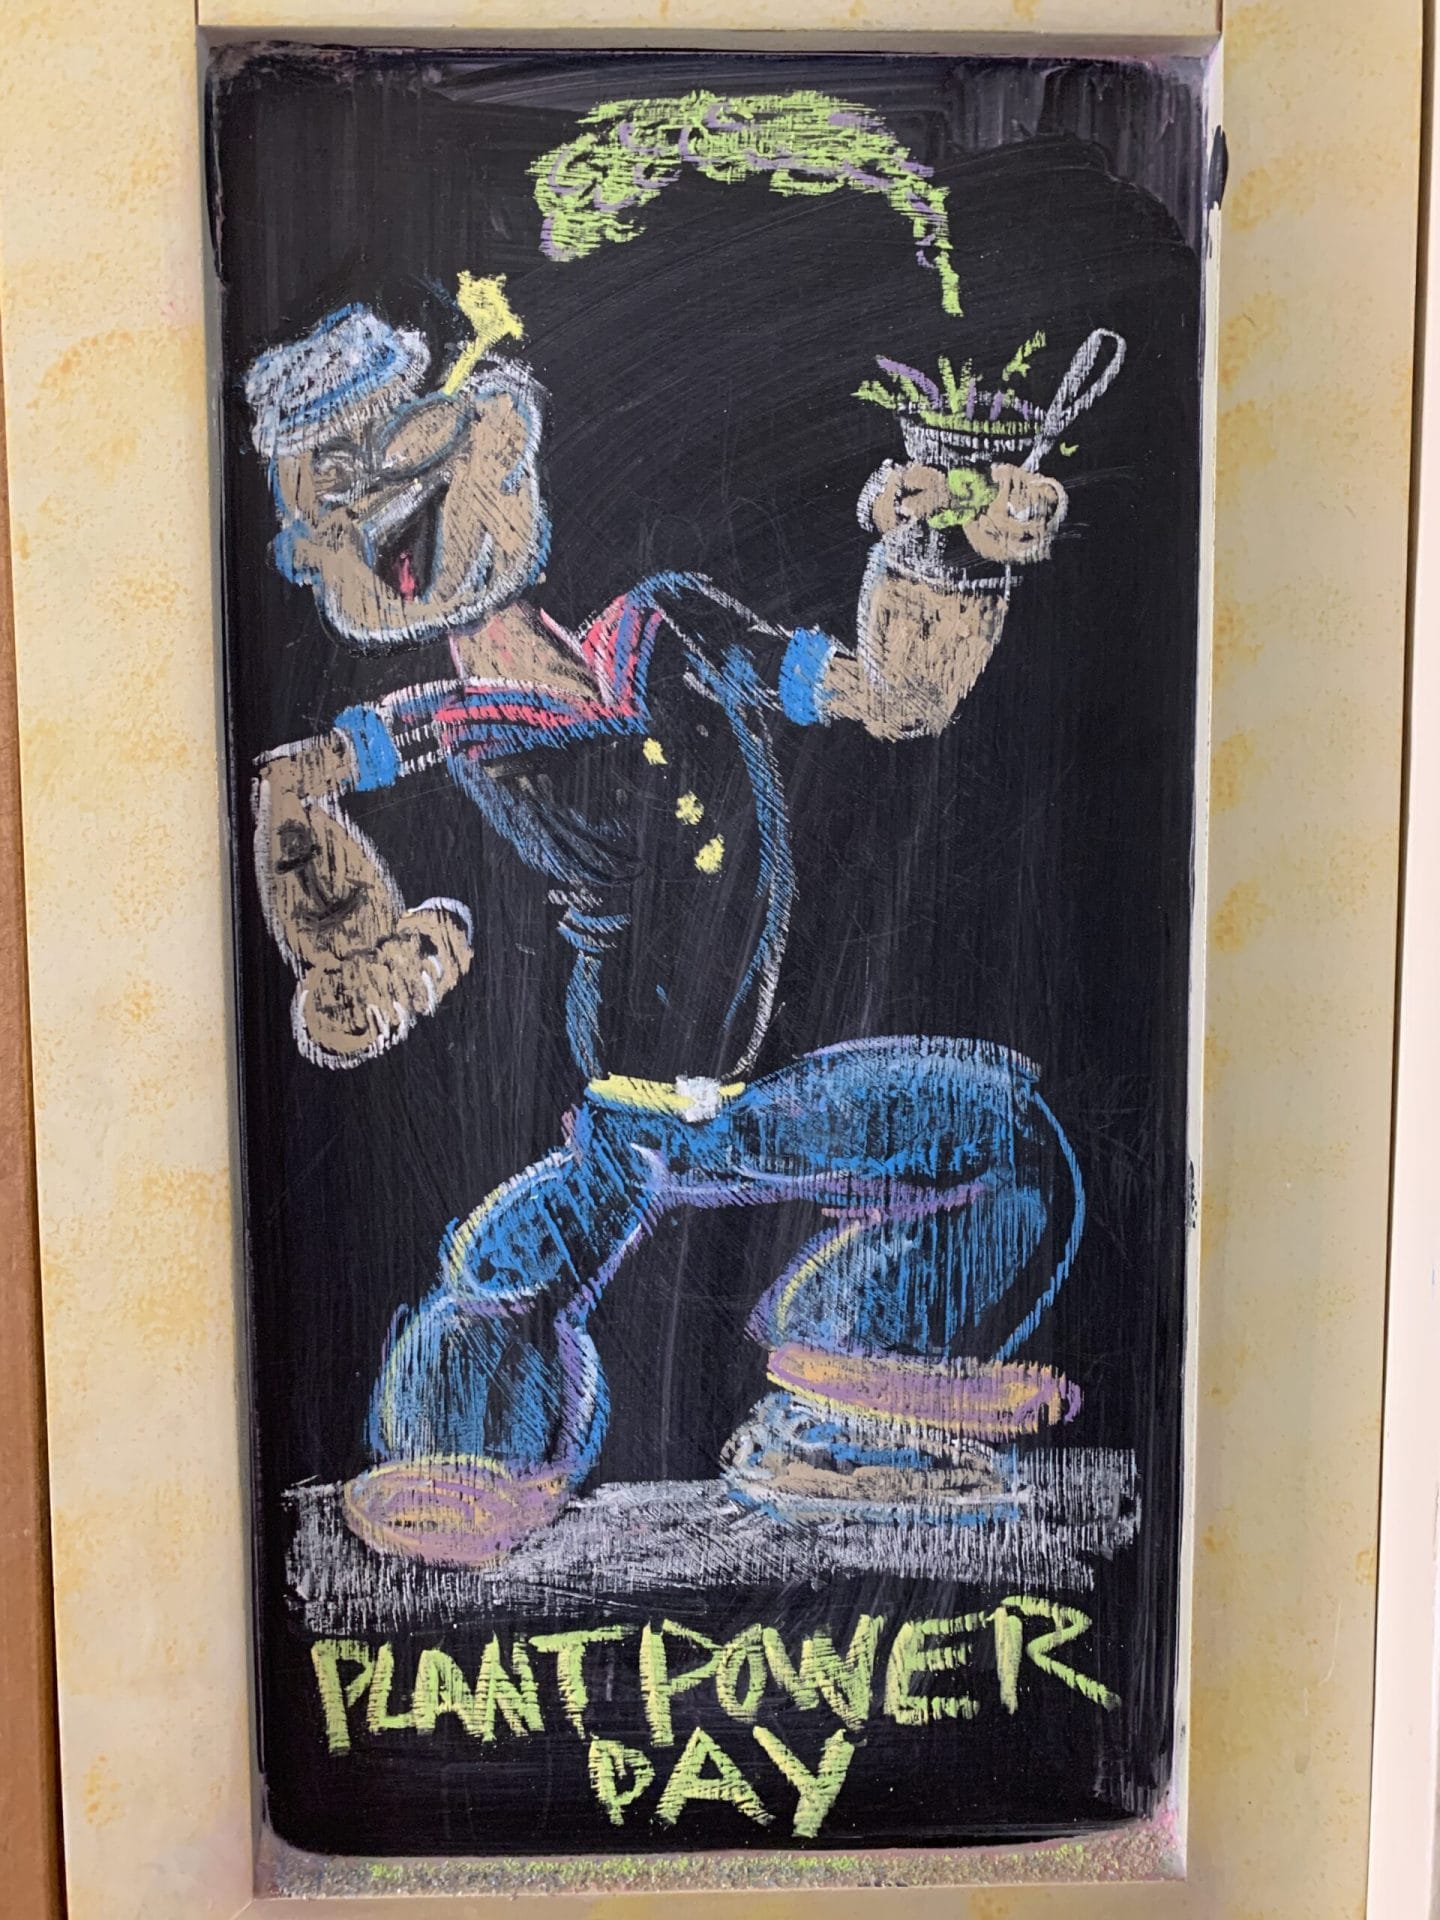 PLANT POWER
DAY